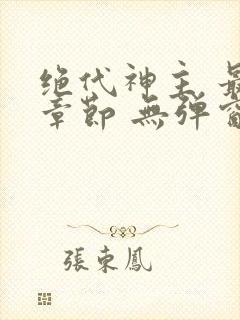 绝代神主 最
章節 無弹窗
張東鳳